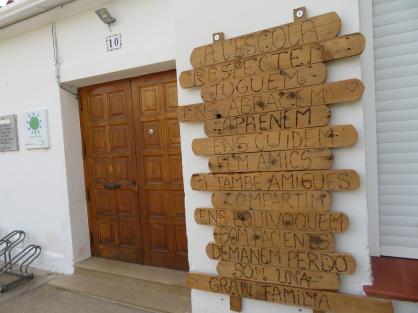 10
A L'ESCOLA
RESPECTEM
JUGUEM
ENS ABRACEM
APRENEM
ENS CUIDEM
FEM AMICS
I TAMBÉ AMIGUES
COMPARTIM
ENS EQUIVOQUEM
COM SIENTEM
DEMANEM PERDÓ
SOM UNA
GRAN FAMILIA